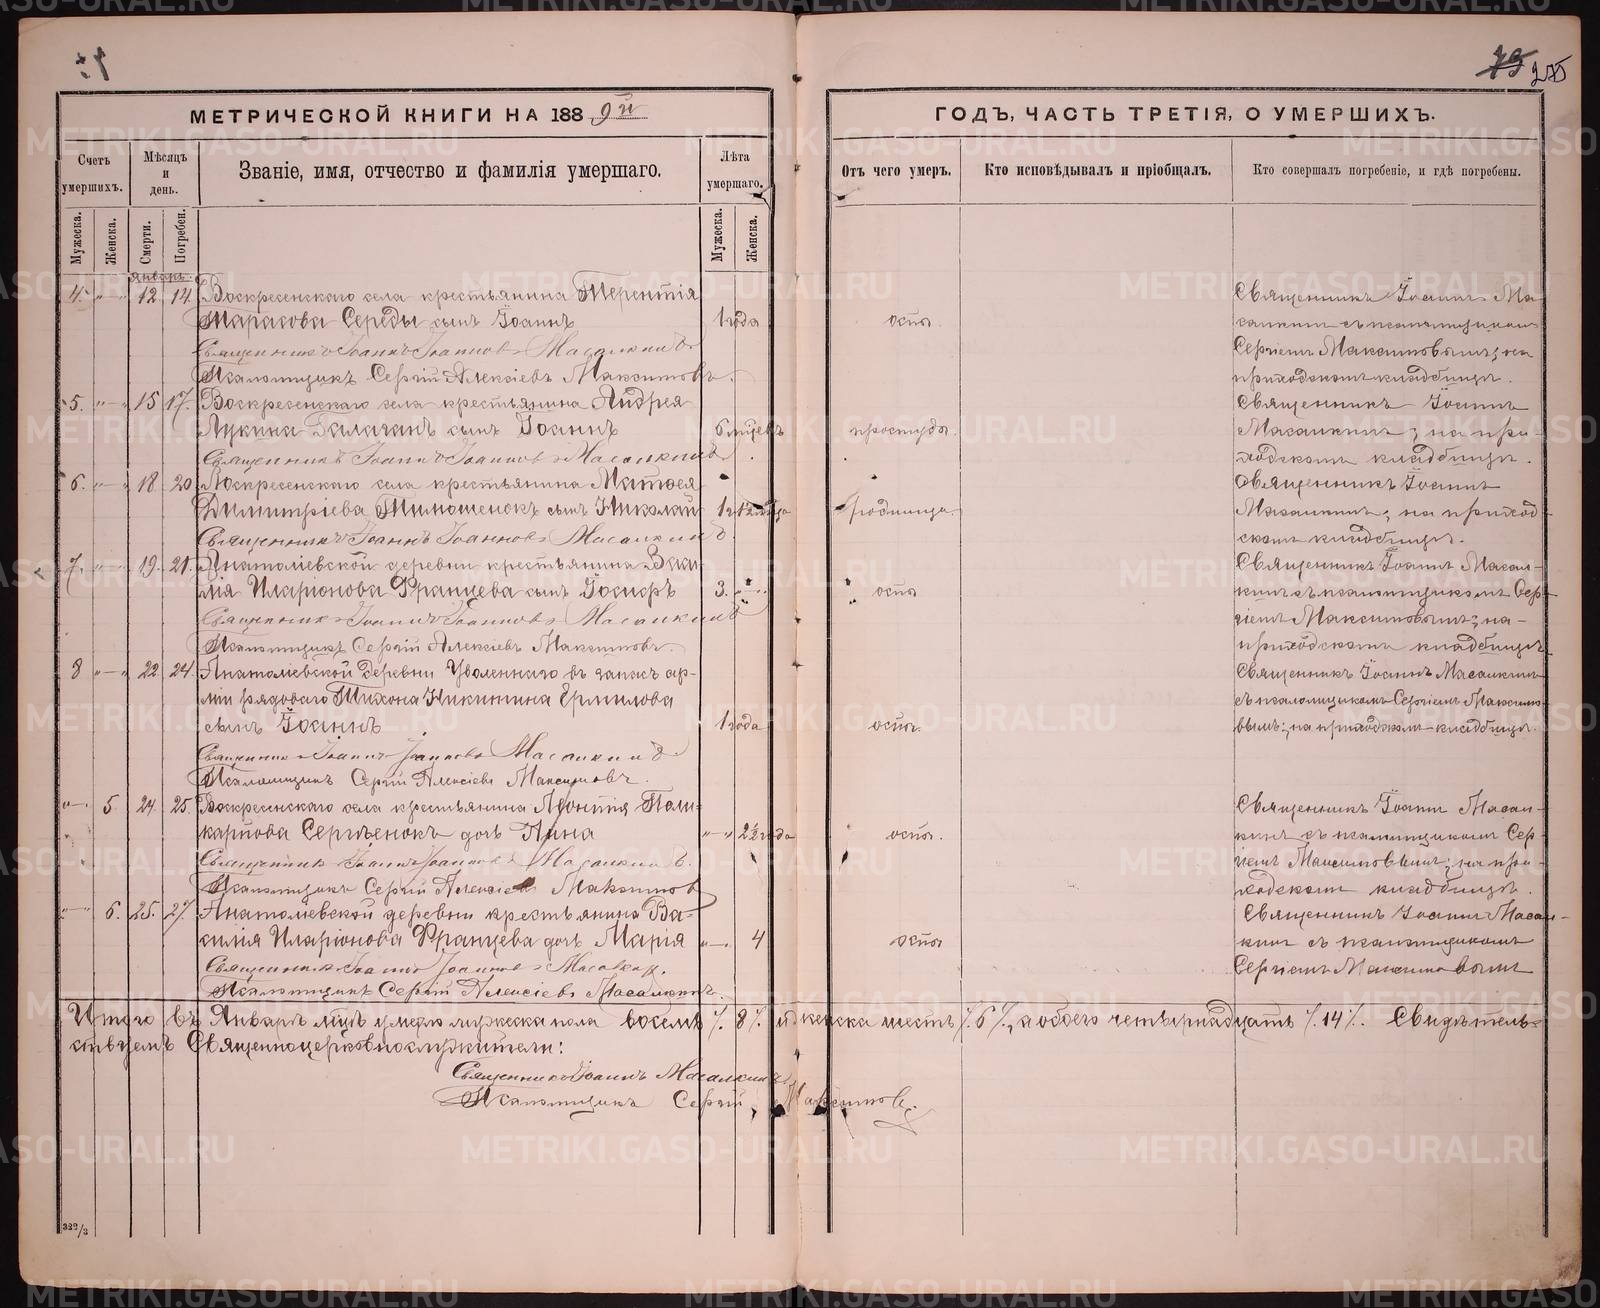 75 275
МЕТРИЧЕСКОЙ КНИГИ НА 1889й
ГОДЪ, ЧАСТЬ ТРЕТІЯ, О УМЕРШИХЪ.
Счетъ умершихъ.
Мѣсяцъ и день.
Званіе, имя, отчество и фамилія умершаго.
Лѣта умершаго.
Отъ чего умеръ.
Кто исповѣдывалъ и пріобщалъ.
Кто совершалъ погребеніе, и гдѣ погребены.
Мужеска.
Женска.
Смерти.
Погребен.
Мужеска.
Женска.
Январь.
4. 12 14 Воскресенскаго села крестьянина Терентія
Тарасова Середы сынъ Іоаннъ 1 года оспы.
Священникъ Іоаннъ Іоанновъ Масалкинъ
Псаломщикъ Сергій Алексіевъ Максимовъ.
Священникъ Іоаннъ Ма-
салкинъ съ псаломщикомъ
Сергіемъ Максимовымъ; на
приходскомъ кладбищѣ.
5. 15 17. Воскресенскаго села крестьянина Андрея
Лукина Галаганъ сынъ Іоаннъ 6 мцевъ простуды.
Священникъ Іоаннъ Іоанновъ Масалкинъ
Священникъ Іоаннъ
Масалкинъ; на при-
ходскомъ кладбищѣ.
6. 18 20 Воскресенскаго села крестьянина Матвея
Димитріева Тимошенокъ сынъ Николай родимца.
Священникъ Іоаннъ Іоанновъ Масалкинъ
Священникъ Іоаннъ
Масалкинъ; на приход
скомъ кладбищѣ.
7. 19. 21. Анатоліевской деревни крестьянина Васи-
лія Иларіонова Францева сынъ Іосифъ 3. оспы
Священникъ Іоаннъ Іоанновъ Масалкинъ
Псаломщикъ Сергій Алексіевъ Максимовъ.
Священникъ Іоаннъ Масал-
кинъ съ псаломщикомъ Сер-
гіемъ Максимовымъ; на-
приходскомъ кладбищѣ
8 22 24. Анатоліевской деревни уволеннаго въ запасъ ар-
міи рядоваго Тихона Никитина Ермилова
сынъ Іоаннъ 1 года оспы.
Священникъ Іоаннъ Іоанновъ Масалкинъ
Псаломщикъ Сергій Алексіевъ Максимовъ.
Священникъ Іоаннъ Масалкинъ
съ псаломщикомъ Сергіемъ Максимо
вымъ; на приходскомъ кладбищѣ.
5. 24. 25. Воскресенскаго села крестьянина Леонтія Поли-
карпова Сергѣенокъ дочь Анна 2½ года оспы.
Священникъ Іоаннъ Іоанновъ Масалкинъ.
Псаломщикъ Сергій Алексіевъ Максимовъ
Священникъ Іоаннъ Масал-
кинъ съ псаломщикомъ Сер-
гіемъ Максимовымъ; на при-
ходскомъ кладбищѣ.
6. 25. 27. Анатолиевской деревни крестьянина Ва-
силія Иларіонова Францева дочь Марія 4 оспы
Священникъ Іоаннъ Іоанновъ Масалкин.
Псаломщикъ Сергій Алексіевъ Масалкинъ.
Священникъ Іоаннъ Масал-
кинъ съ псаломщикомъ
Сергіемъ Максимовымъ
Итого въ Январѣ мцѣ умерло мужеска пола восемь /. 8 /. и женска шесть /. 6 /., а обоего четырнадцать /. 14 /. Свидѣтель-
ствуемъ Священноцерковнослужители:
Священникъ Іоаннъ Масалкинъ
Псаломщикъ Сергій Максимовъ.
322/3
METRIKI.GASO-URAL.RU